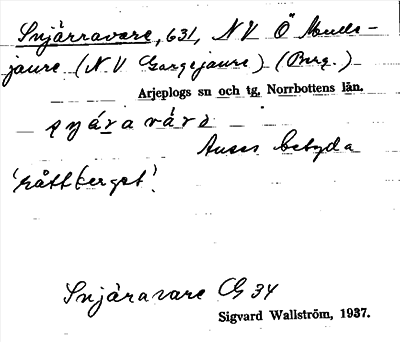 Snjärravare, 631, N V Ö
jaure (N.V Gargejaure) (Berg.)
Arjeplogs sn och tg, Norrbottens län.
Anses betyda
'råttberget'.
Snjäravare G 34
Sigvard Wallström, 1937.